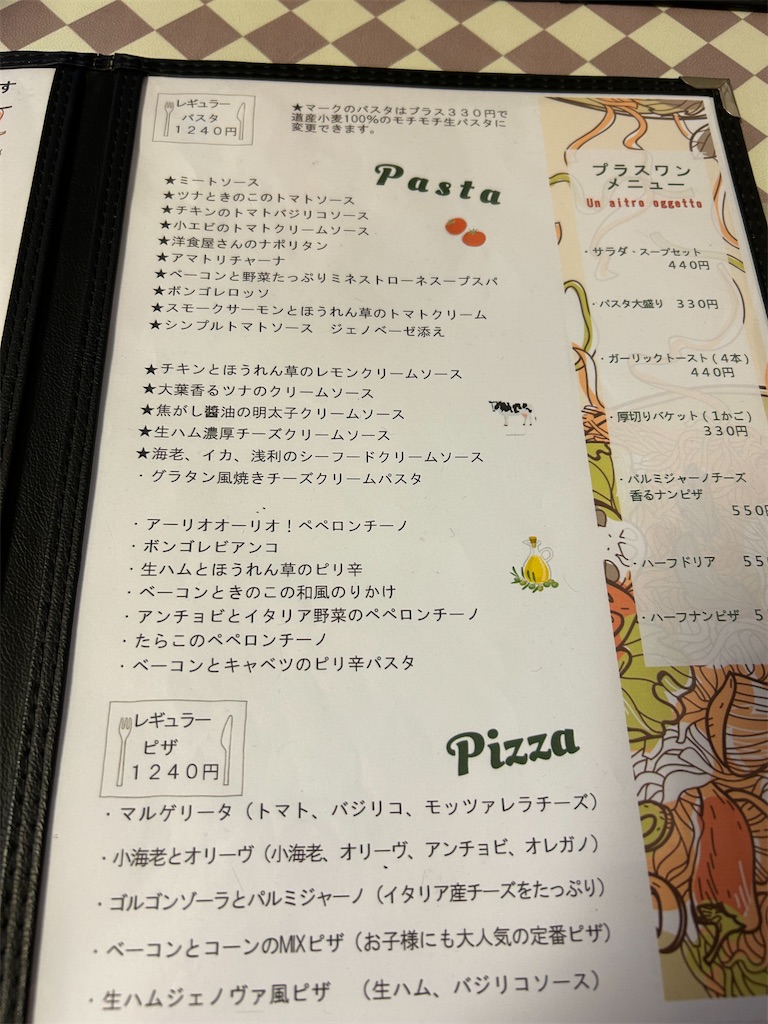 レギュラー
パスタ
１２４０円
★マークのパスタはプラス３３０円で
道産小麦100%のモチモチ生パスタに
変更できます。
Pasta
★ミートソース
★ツナときのこのトマトソース
★チキンのトマトバジリコソース
★小エビのトマトクリームソース
★洋食屋さんのナポリタン
★アマトリチャーナ
★ベーコンと野菜たっぷりミネストローネスープスパ
★ボンゴレロッソ
★スモークサーモンとほうれん草のトマトクリーム
★シンプルトマトソース　ジェノベーゼ添え
★チキンとほうれん草のレモンクリームソース
★大葉香るツナのクリームソース
★焦がし醤油の明太子クリームソース
★生ハム濃厚チーズクリームソース
★海老、イカ、浅利のシーフードクリームソース
・グラタン風焼きチーズクリームパスタ
・アーリオオーリオ！ペペロンチーノ
・ボンゴレビアンコ
・生ハムとほうれん草のピリ辛
・ベーコンときのこの和風のりかけ
・アンチョビとイタリア野菜のペペロンチーノ
・たらこのペペロンチーノ
・ベーコンとキャベツのピリ辛パスタ
レギュラー
ピザ
１２４０円
Pizza
・マルゲリータ（トマト、バジリコ、モッツァレラチーズ）
・小海老とオリーヴ（小海老、オリーヴ、アンチョビ、オレガノ）
・ゴルゴンゾーラとパルミジャーノ（イタリア産チーズをたっぷり）
・ベーコンとコーンのMIXピザ（お子様にも大人気の定番ピザ）
・生ハムジェノヴァ風ピザ　（生ハム、バジリコソース）
プラスワン
メニュー
Un aitro oggetto
・サラダ・スープセット
４４０円
・パスタ大盛り　３３０円
・ガーリックトースト(４本)
４４０円
・厚切りバケット(１かご)
３３０円
・パルミジャーノチーズ
香るナンピザ
５５０円
・ハーフドリア　５５
・ハーフナンピザ　５
す